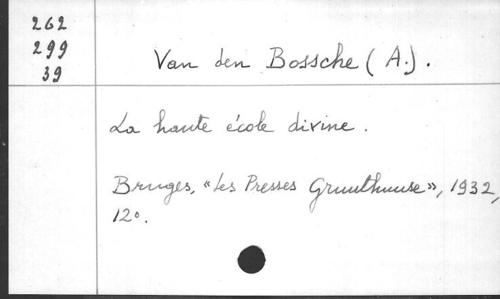 262
299
39
Van den Bossche (A.).
La haute école divine.
Bruges, «Les Presses Gruuthuuse», 1932,
12°.